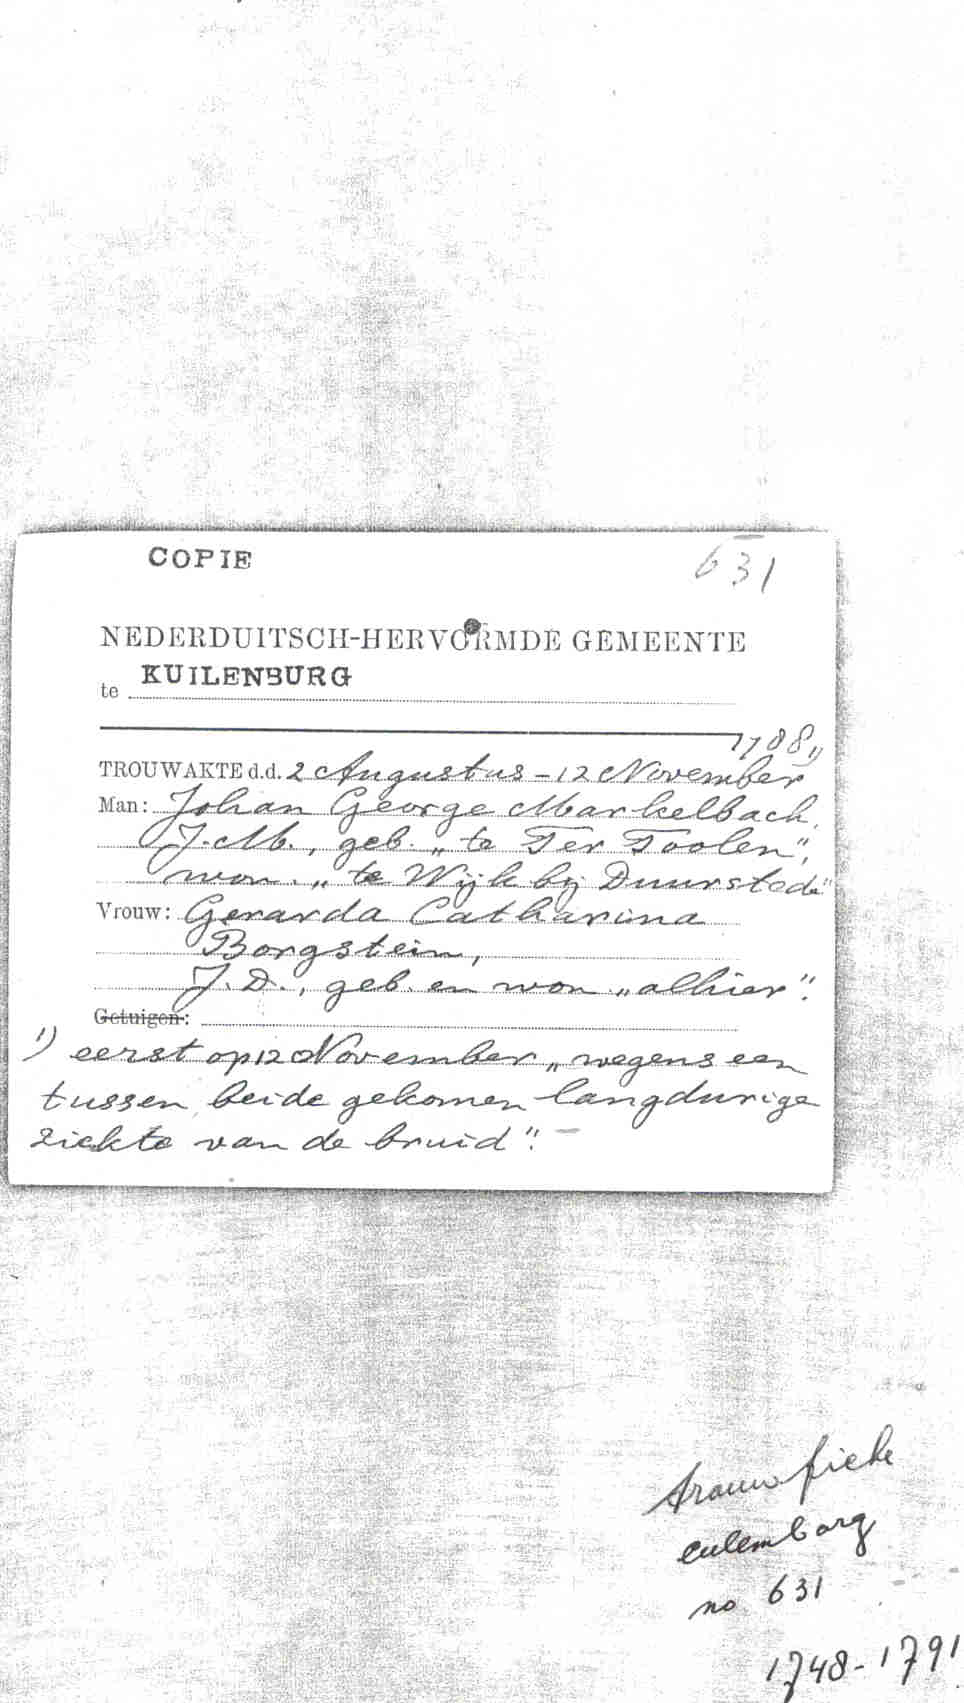 COPIE
631
NEDERDUITSCH-HERVORMDE GEMEENTE
te KUILENBURG
1788 1)
TROUWAKTE d.d. 2 Augustus - 12 November
Man: Johan George Markelbach,
J.M., geb. „te Ter Toolen",
won. „te Wijk bij Duurstede"
Vrouw: Gerarda Catharina
Borgstein,
J.D., geb. en won „alhier".
Getuigen:
1) eerst op 12 November „wegens een
tussen beide gekomen langdurige
ziekte van de bruid". -
trouw fiche
culemborg
no 631
1748-1791